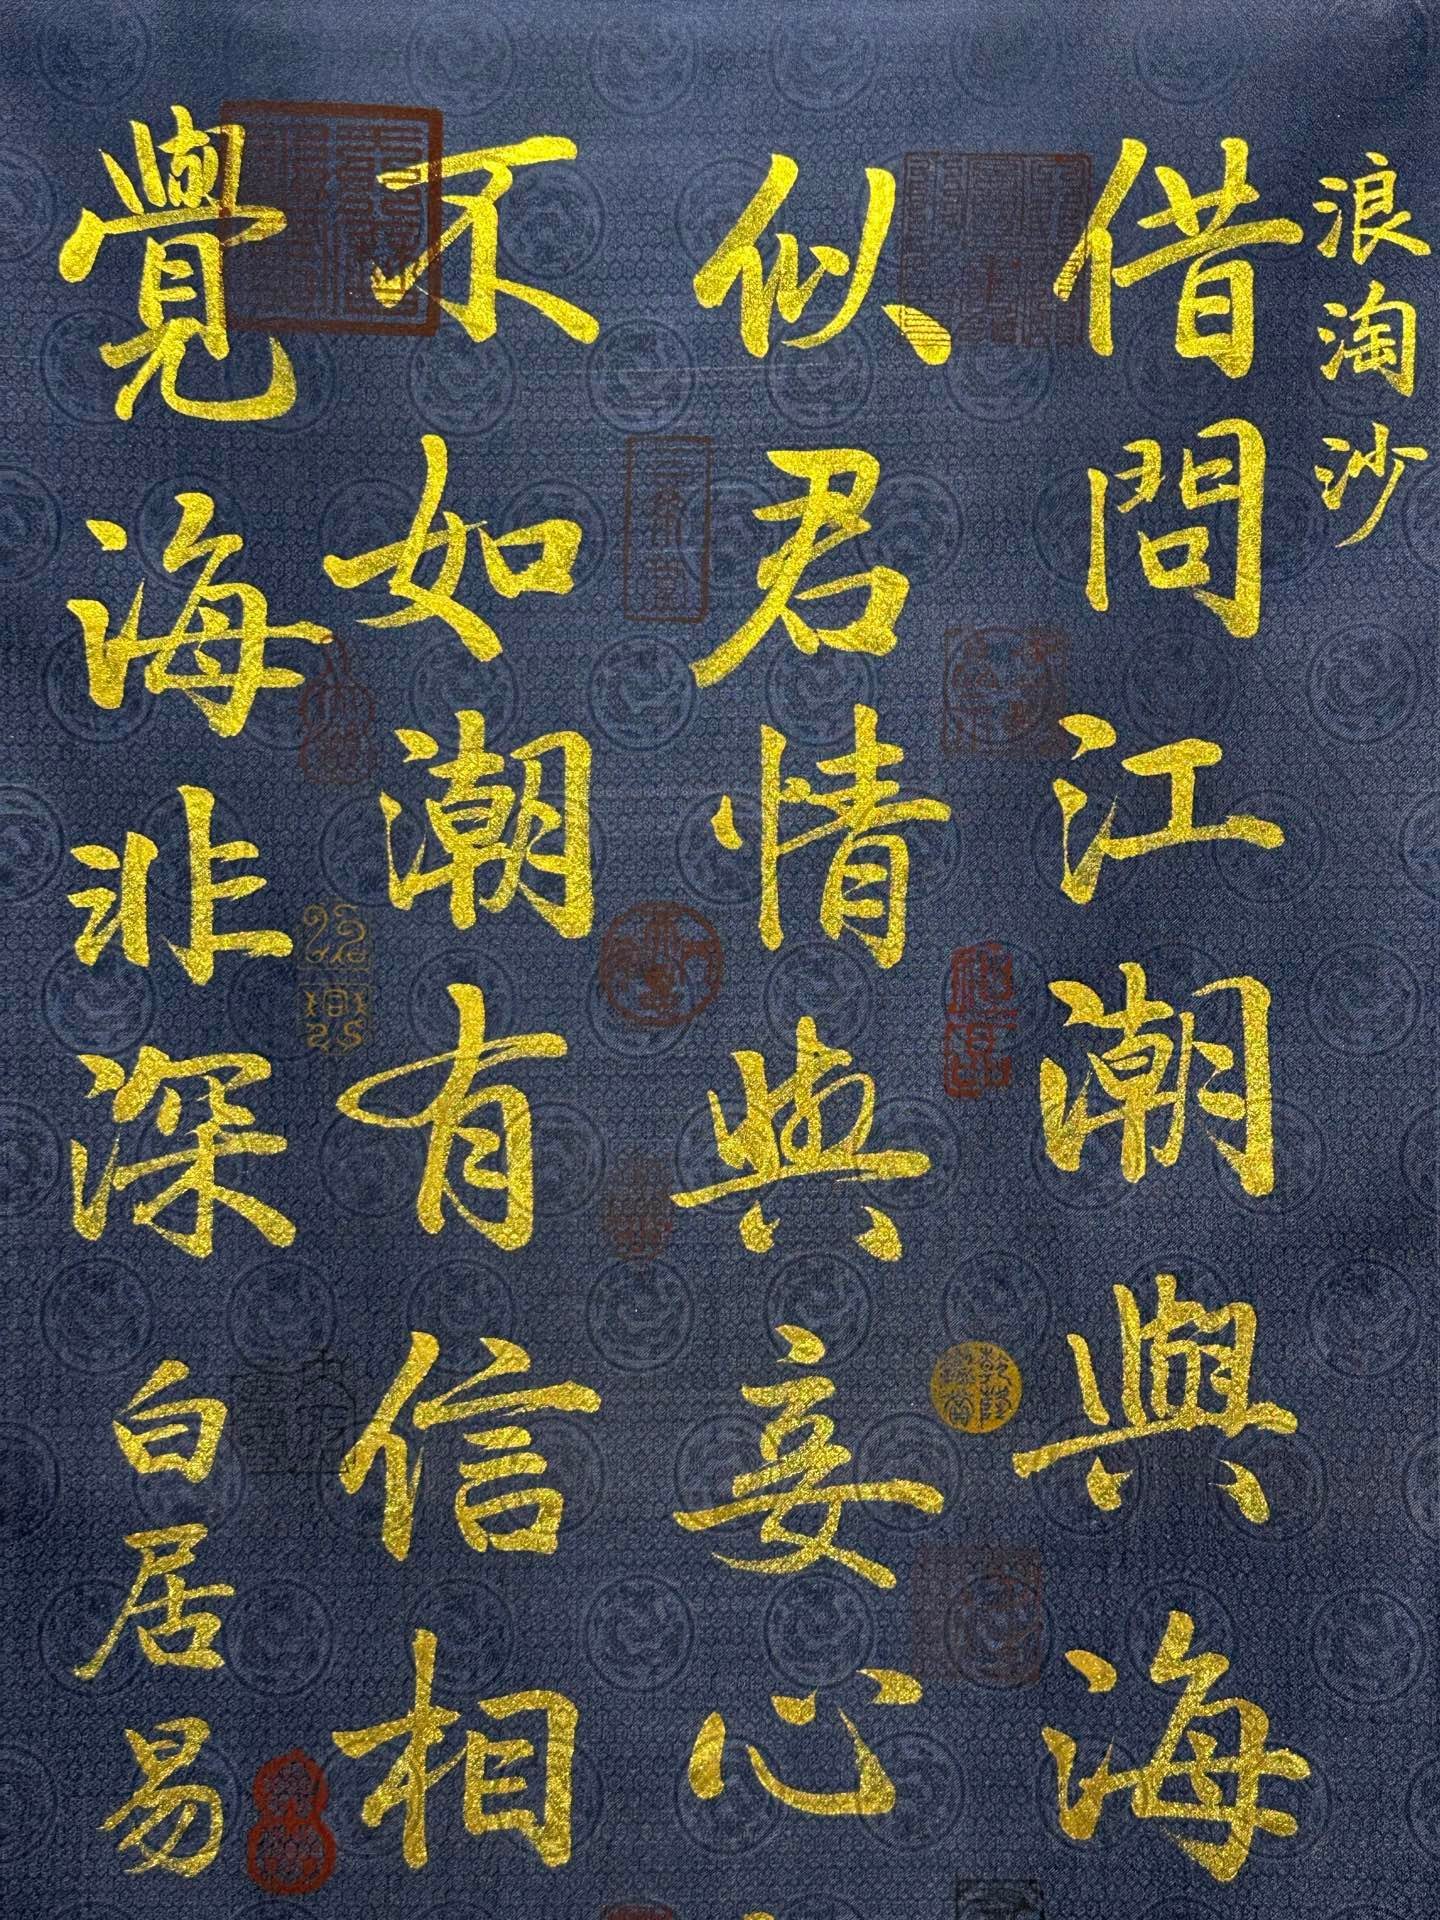 浪淘沙
借問江潮與海
似君情與妾心
不如潮有信相
覺海非深
白居易